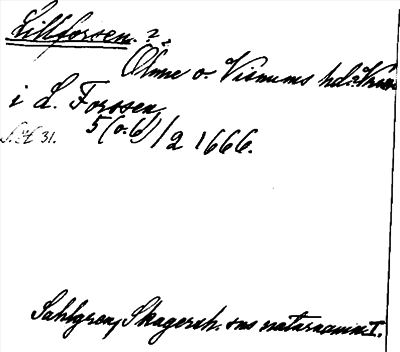 Lillforsen. ?
Ölme o. Visnums hd.
i L. Forssen
31. 5 (o. 6)/2 1666.
Sahlgren, Skagersh. sns naturnamn I.